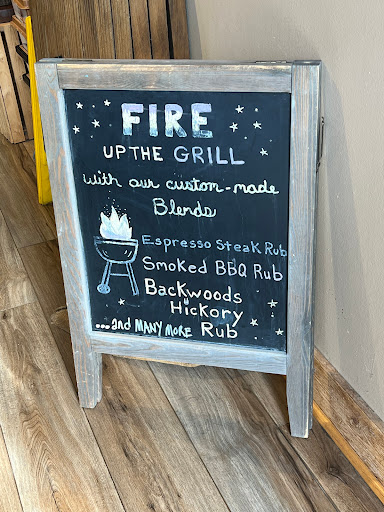 FIRE
UP THE GRILL
with our custom-made
Blends
Espresso Steak Rub
Smoked BBQ Rub
Backwoods
Hickory
Rub
...and MANY MORE